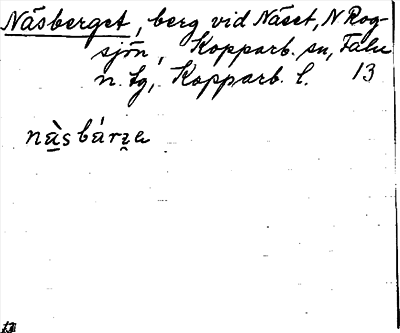 Näsberget, berg vid Näset, N Rog-
sjön, Kopparb. sn, Falu
n. tg, Kopparb. l. 13
nä̀sbárʒ̨e